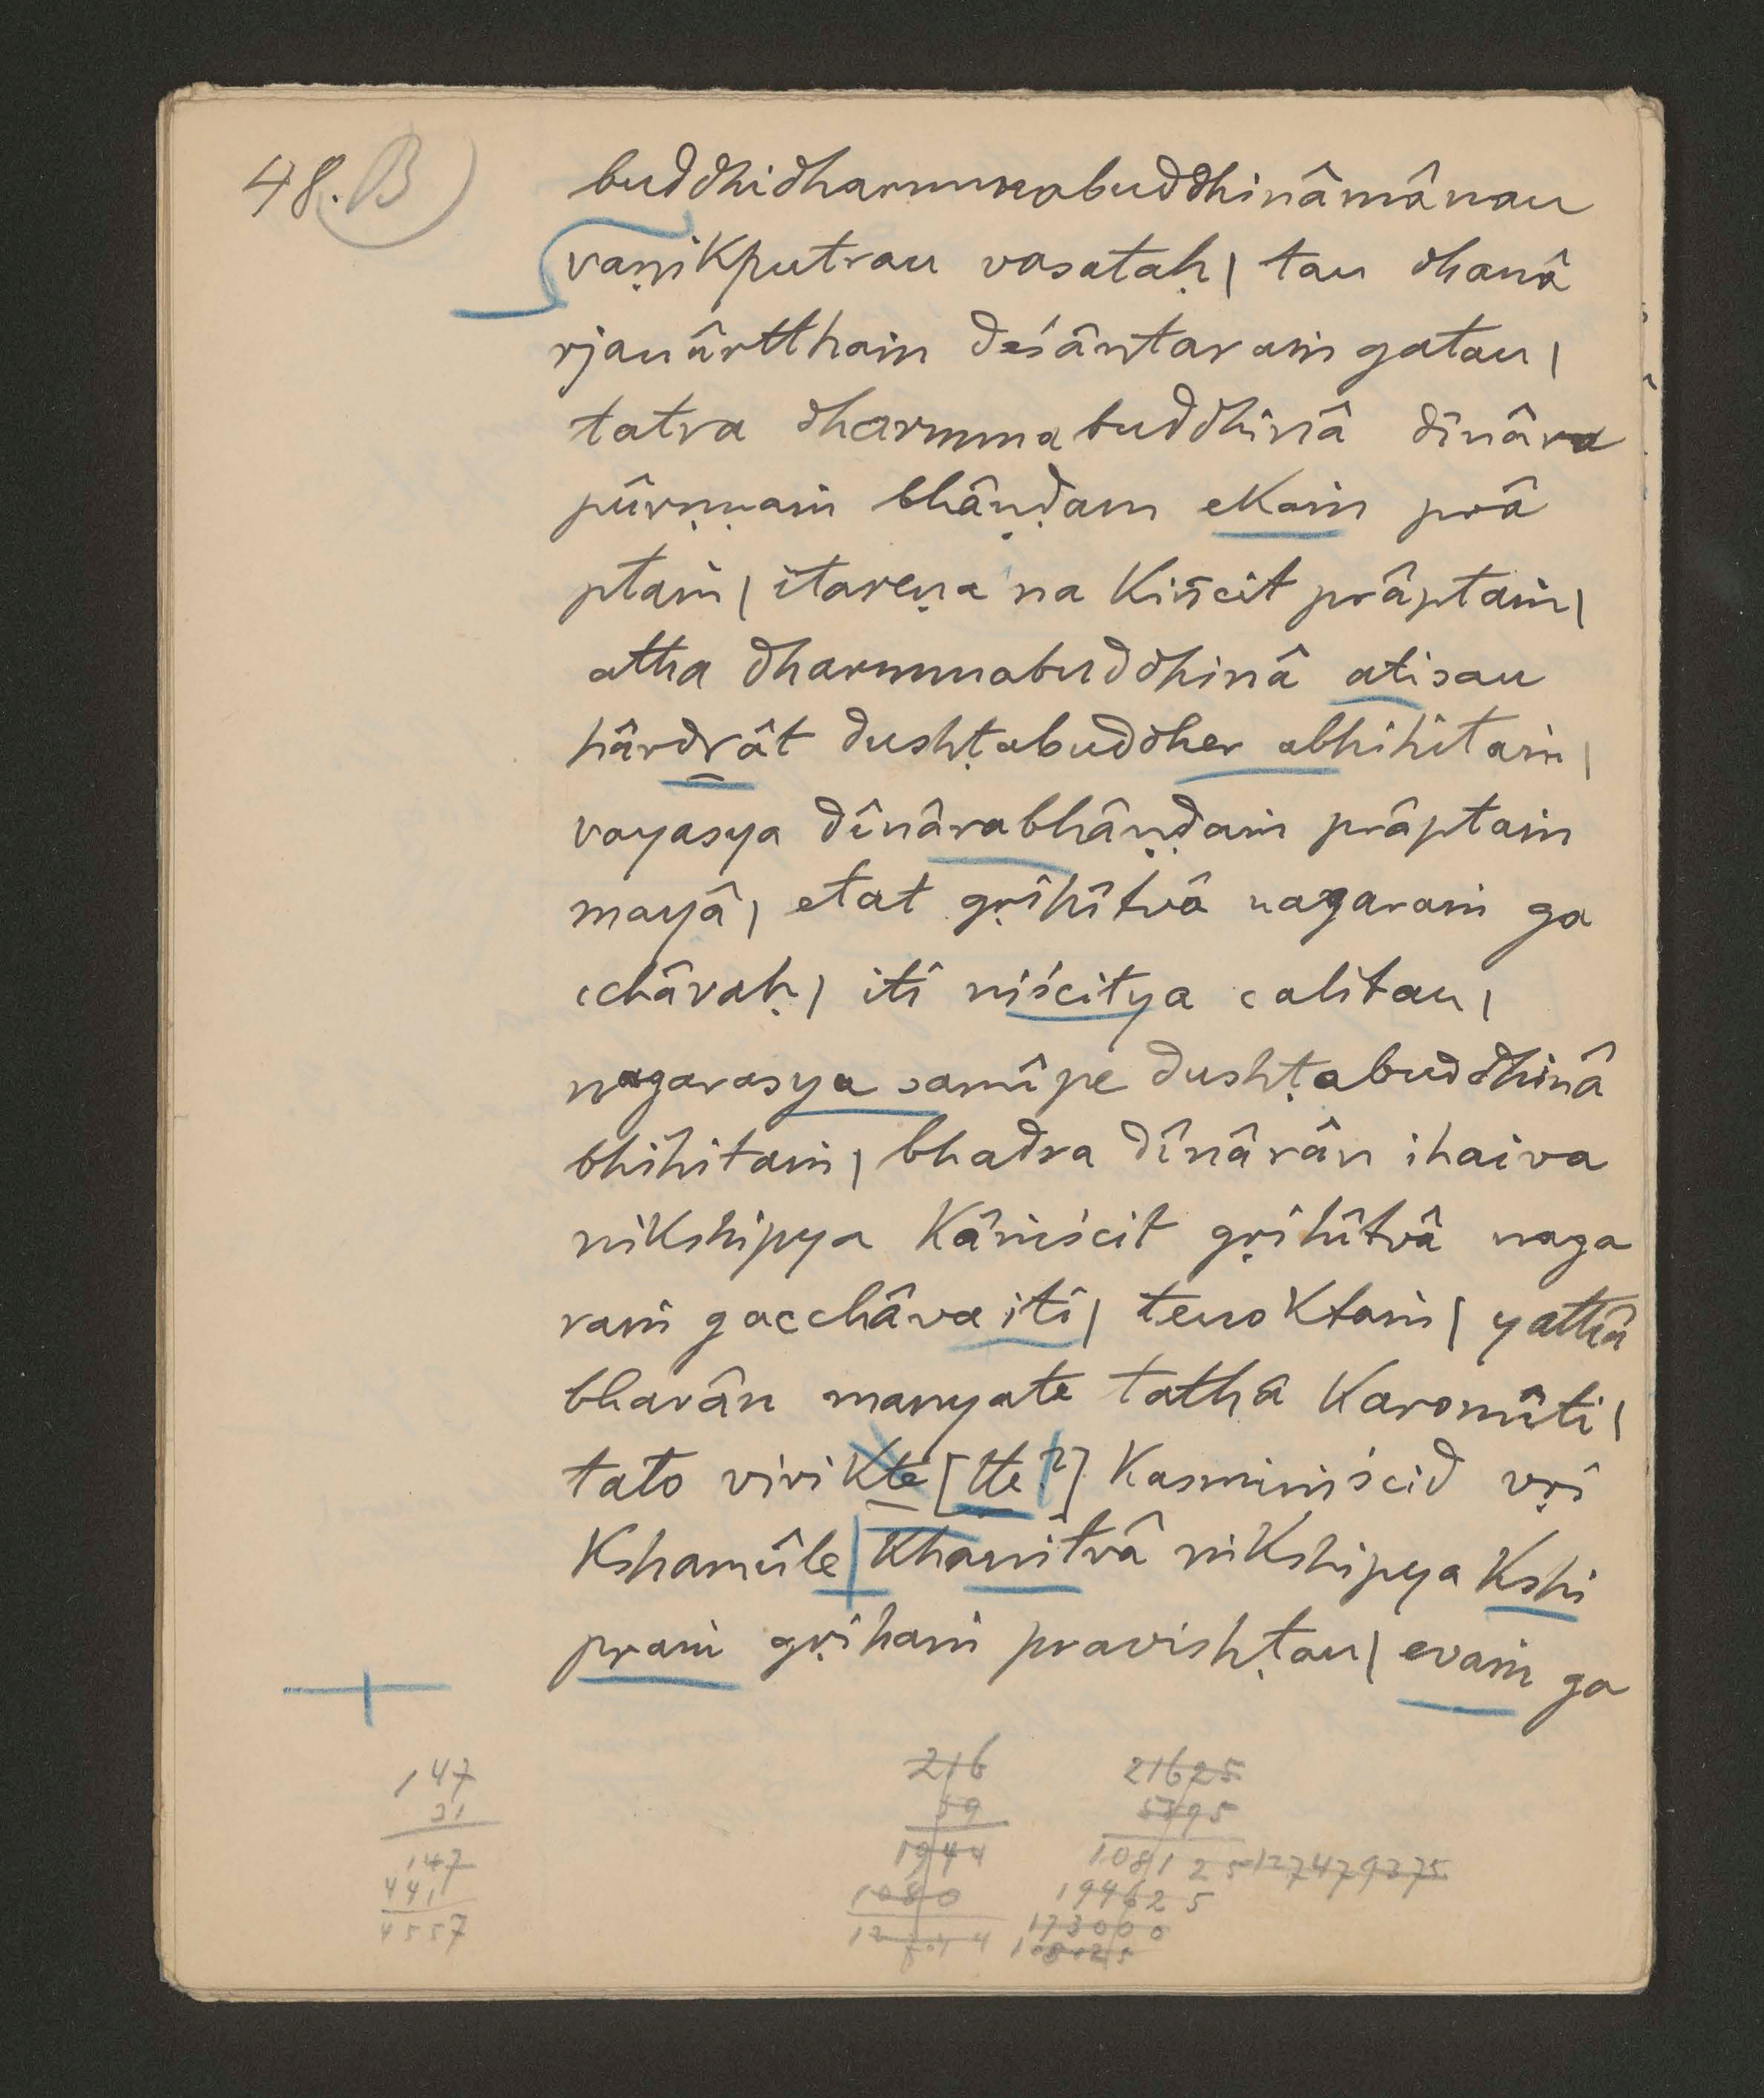 48. B)
buddhidharmmabuddhinâmânau
vaṇikputrau vasataḥ | tau dhanâ
rjanârtthaṁ deśântaraṁ gatau |
tatra dharmmabuddhinâ dînâra
pûrṇṇaṁ bhâṇḍam ekaṁ prâ
ptaṁ | itareṇa na kiñcit prâptaṁ |
atha dharmmabuddhinâ atisau
hârdrât dushṭabuddher abhihitaṁ |
vayasya dînârabhâṇḍaṁ prâptaṁ
mayâ | etat gṛihîtvâ nagaraṁ ga
cchâvaḥ | iti niścitya calitau |
nagarasya samîpe dushṭabuddhinâ
bhihitaṁ | bhadra dînârân ihaiva
nikshipya kâṁścit gṛihîtvâ naga
raṁ gacchâva iti | tenoktaṁ | yathâ
bhavân manyate tathâ karomîti |
tato vivikte [tte?] kasmiṁścid vṛi
kshamûle | khanitvâ nikshipya kshi
praṁ gṛihaṁ pravishṭau | evaṁ ga
147
31
147
441
4557
216
59
1944
1080
21625
5895
108125 127479375
194625
173000
108125